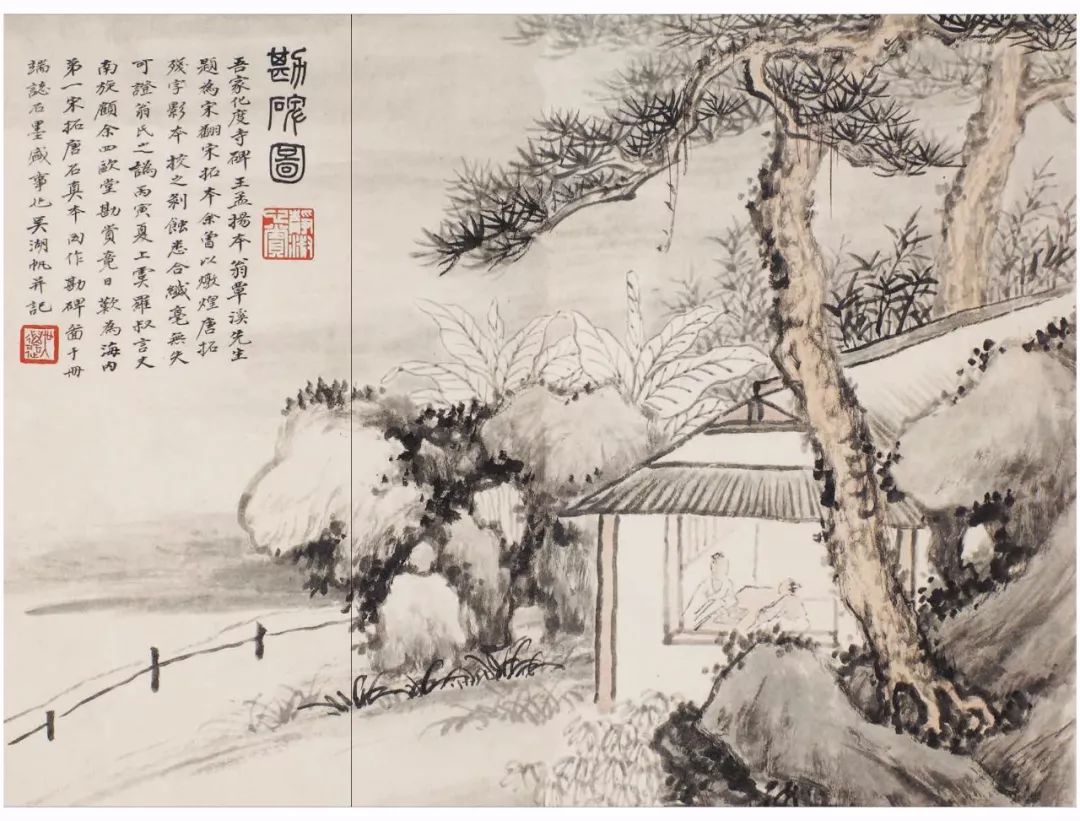 勘碑圖
吾家化度寺碑王孟揚本翁覃溪先生
題為宋翻宋拓本余嘗以燉煌唐拓
殘字影本挍之剥蝕悉合纖毫無失
可證翁氏之譌丙寅夏上虞羅叔言丈
南旋顧余四歐堂勘賞竟日歎為海内
第一宋拓唐石真本囙作勘碑啚于冊
端誌石墨盛事也吴湖帆并記